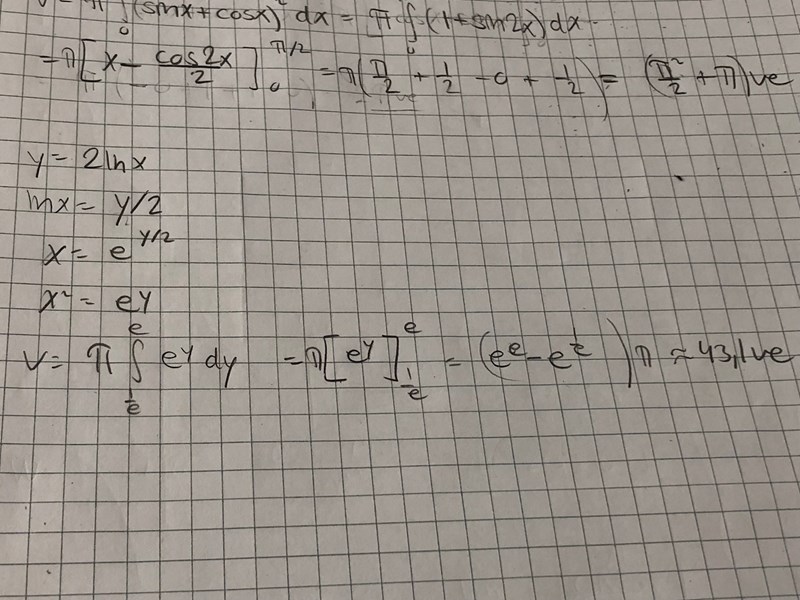 π∫₀ (sinx+cosx)² dx = π∫₀ (1+sin2x)dx
= π[x - cos2x/2]₀^π/2 = π(π/2 + 1/2 - 0 + 1/2) = (π²/2 + π)ve
y = 2lnx
lnx = y/2
x = e^y/2
x² = e^y
V = π ∫_{1/e}^{e} e^y dy = π[e^y]_{1/e}^{e} = (e^e - e^{1/e})π ≈ 43,1ve